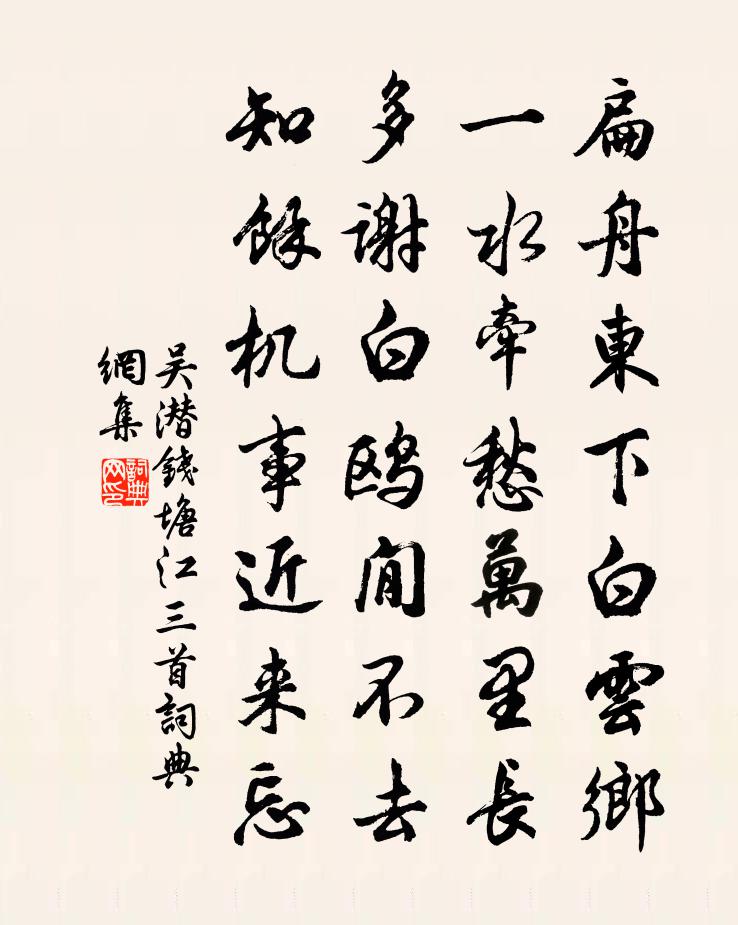 扁舟東下白雲鄉
一水牽愁萬里長
多謝白鸥閒不去
知餘机事近来忘
吴潜錢塘江三首詞典
網集
詞典
网印